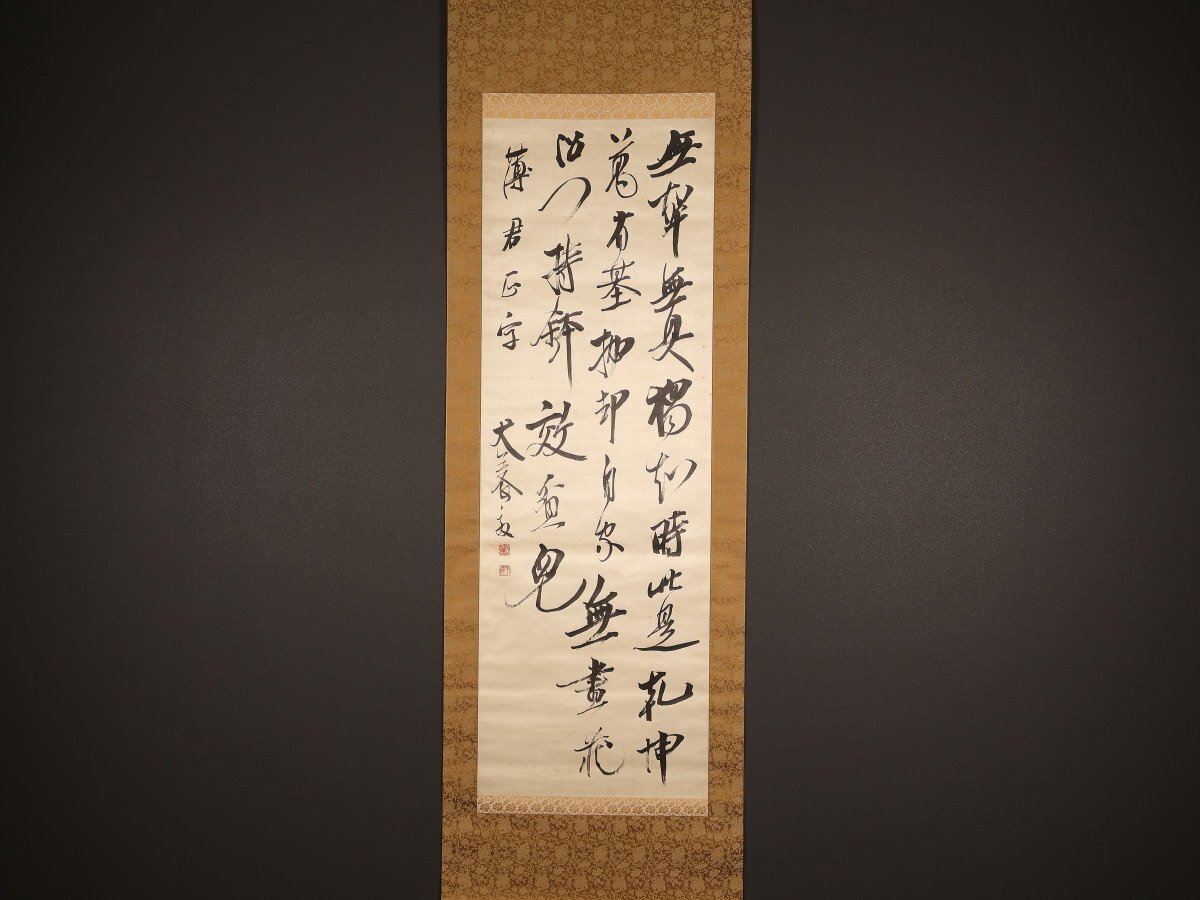 無聲無臭獨知時此是乾坤
萬有基拋却自家無盡藏
沿門持鉢效貧兒
薄君正字 犬養毅